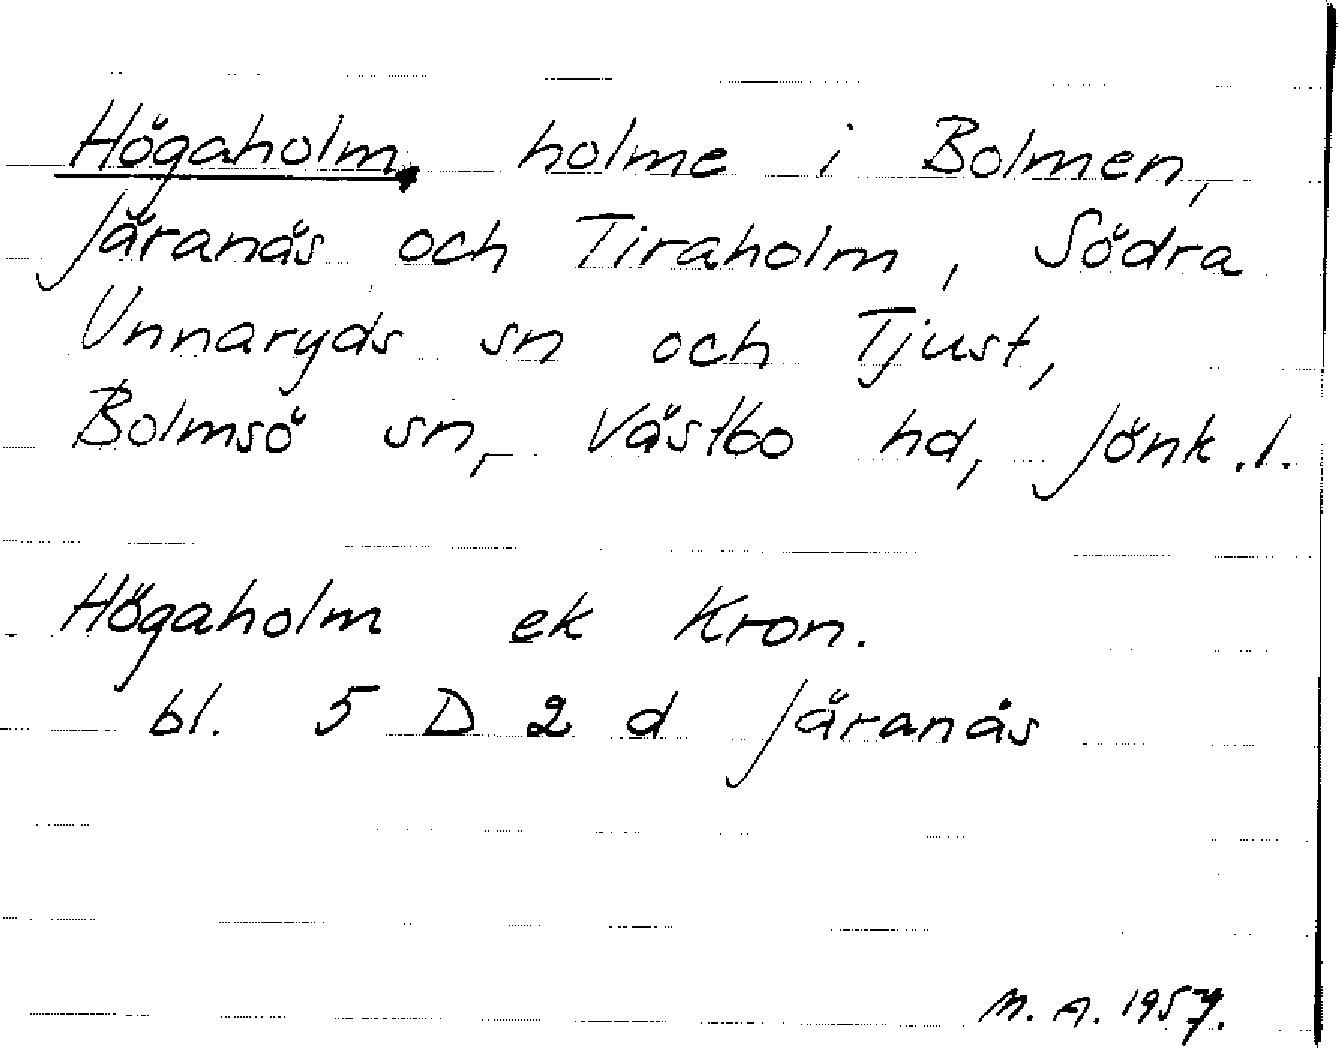 Högaholm, holme i Bolmen,
Järanäs och Tiraholm, Södra
Unnaryds sn och Tjust,
Bolmsö sn, Västbo hd, Jönk.l.
Högaholm ek Kron.
bl. 5 D 2 d Järanäs
M. A. 1957.